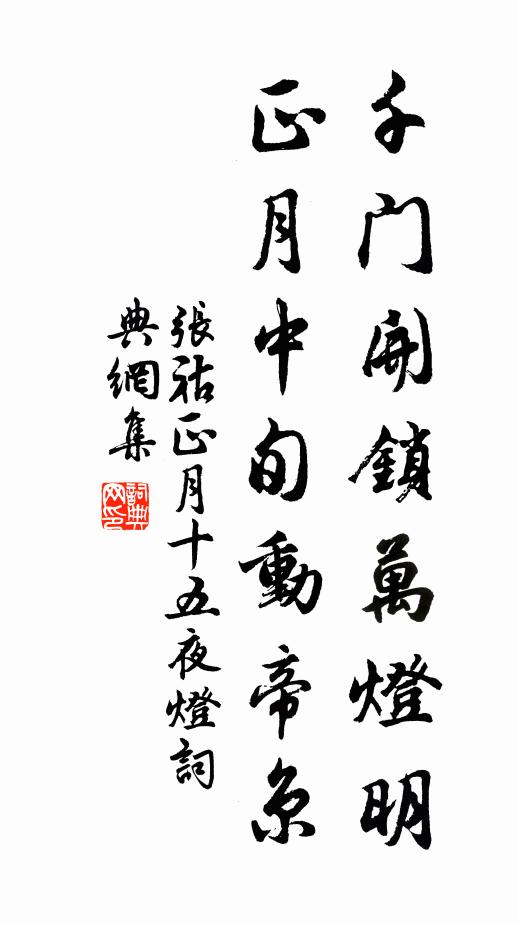 千門開鎖萬燈明
正月中旬動帝京
張祜正月十五夜燈詞
典網集
詞典网印